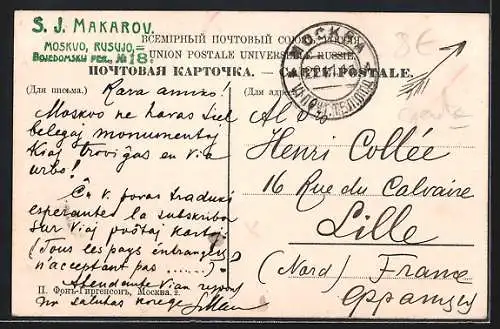 S. J. MAKAROV.
MOSKVO, RUSUJO,=
BOJEDOMSKIJ PER., № 18
ВСЕМІРНЫЙ ПОЧТОВЫЙ СОЮЗ
UNION POSTALE UNIVERSELLE RUSSIE.
ПОЧТОВАЯ КАРТОЧКА. — CARTE POSTALE.
МОСКВА
(Для письма.)
Kara amiko!
Moskvo ne havas tiel
belegaj monumentoj
kiaj troviĝas en Via
urbo!
Ĉu V. povas traduki
esperanten la subskribon
sur Viaj poŝtaj kartoj.
(Tous les pays étrangers
n'acceptent pas .......)?
Atendante Vian respon
mi salutas kore
П. Фонъ-Гиргенсонъ, Москва.
(Для адреса)
Al S-ro
Henri Collée
16 Rue du Calvaire
Lille
(Nord) France